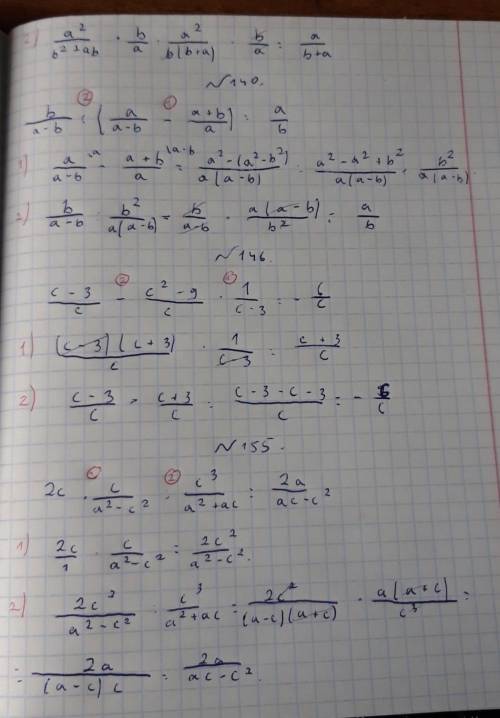 2) a²/(b²+ab) · b/a = a²/(b(b+a)) · b/a = a/(b+a)
№140.
b/(a-b) : (a/(a-b) - (a+b)/a) = a/b
1) a/(a-b) - (a+b)/a = (a²-(a²-b²))/(a(a-b)) = (a²-a²+b²)/(a(a-b)) = b²/(a(a-b)).
2) b/(a-b) : b²/(a(a-b)) = b/(a-b) · a(a-b)/b² = a/b
№146.
(c-3)/c - (c²-9)/c · 1/(c-3) = -6/c
1) (c-3)(c+3)/c · 1/(c-3) = (c+3)/c
2) (c-3)/c - (c+3)/c = (c-3-c-3)/c = -6/c
№155.
2c · c/(a²-c²) : c³/(a²+ac) = 2a/(ac-c²)
1) 2c/1 · c/(a²-c²) = 2c²/(a²-c²).
2) 2c²/(a²-c²) : c³/(a²+ac) = 2c²/((a-c)(a+c)) · a(a+c)/c³ =
= 2a/((a-c)c) = 2a/(ac-c²).